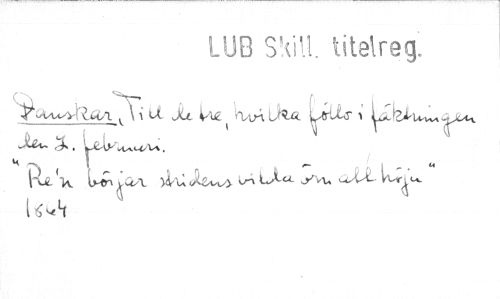 LUB Skill. titelreg.
Danskar, Till de tre, hvilka föllo i fäktningen
den 2. februari.
"Re'n börjar stridens vilda örn att höja"
1864